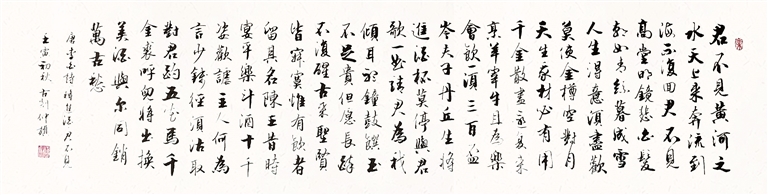 君不見黃河之
水天上來奔流到
海不復回君不見
高堂明鏡悲白髮
朝如青絲暮成雪
人生得意須盡歡
莫使金樽空對月
天生我材必有用
千金散盡還復來
烹羊宰牛且為樂
會飲須三百盃
岑夫子丹丘生將
進酒杯莫停與君
歌一曲請君為我
傾耳聽鐘鼓饌玉
不足貴但願長醉
不復醒古來聖賢
皆寂寞惟有飲者
留其名陳王昔時
宴平樂斗酒十千
恣歡謔主人何為
言少錢徑須沽取
對君酌五花馬千
金裘呼兒將出換
美酒與爾同銷
萬古愁
唐李白詩將進酒君不見
初秋